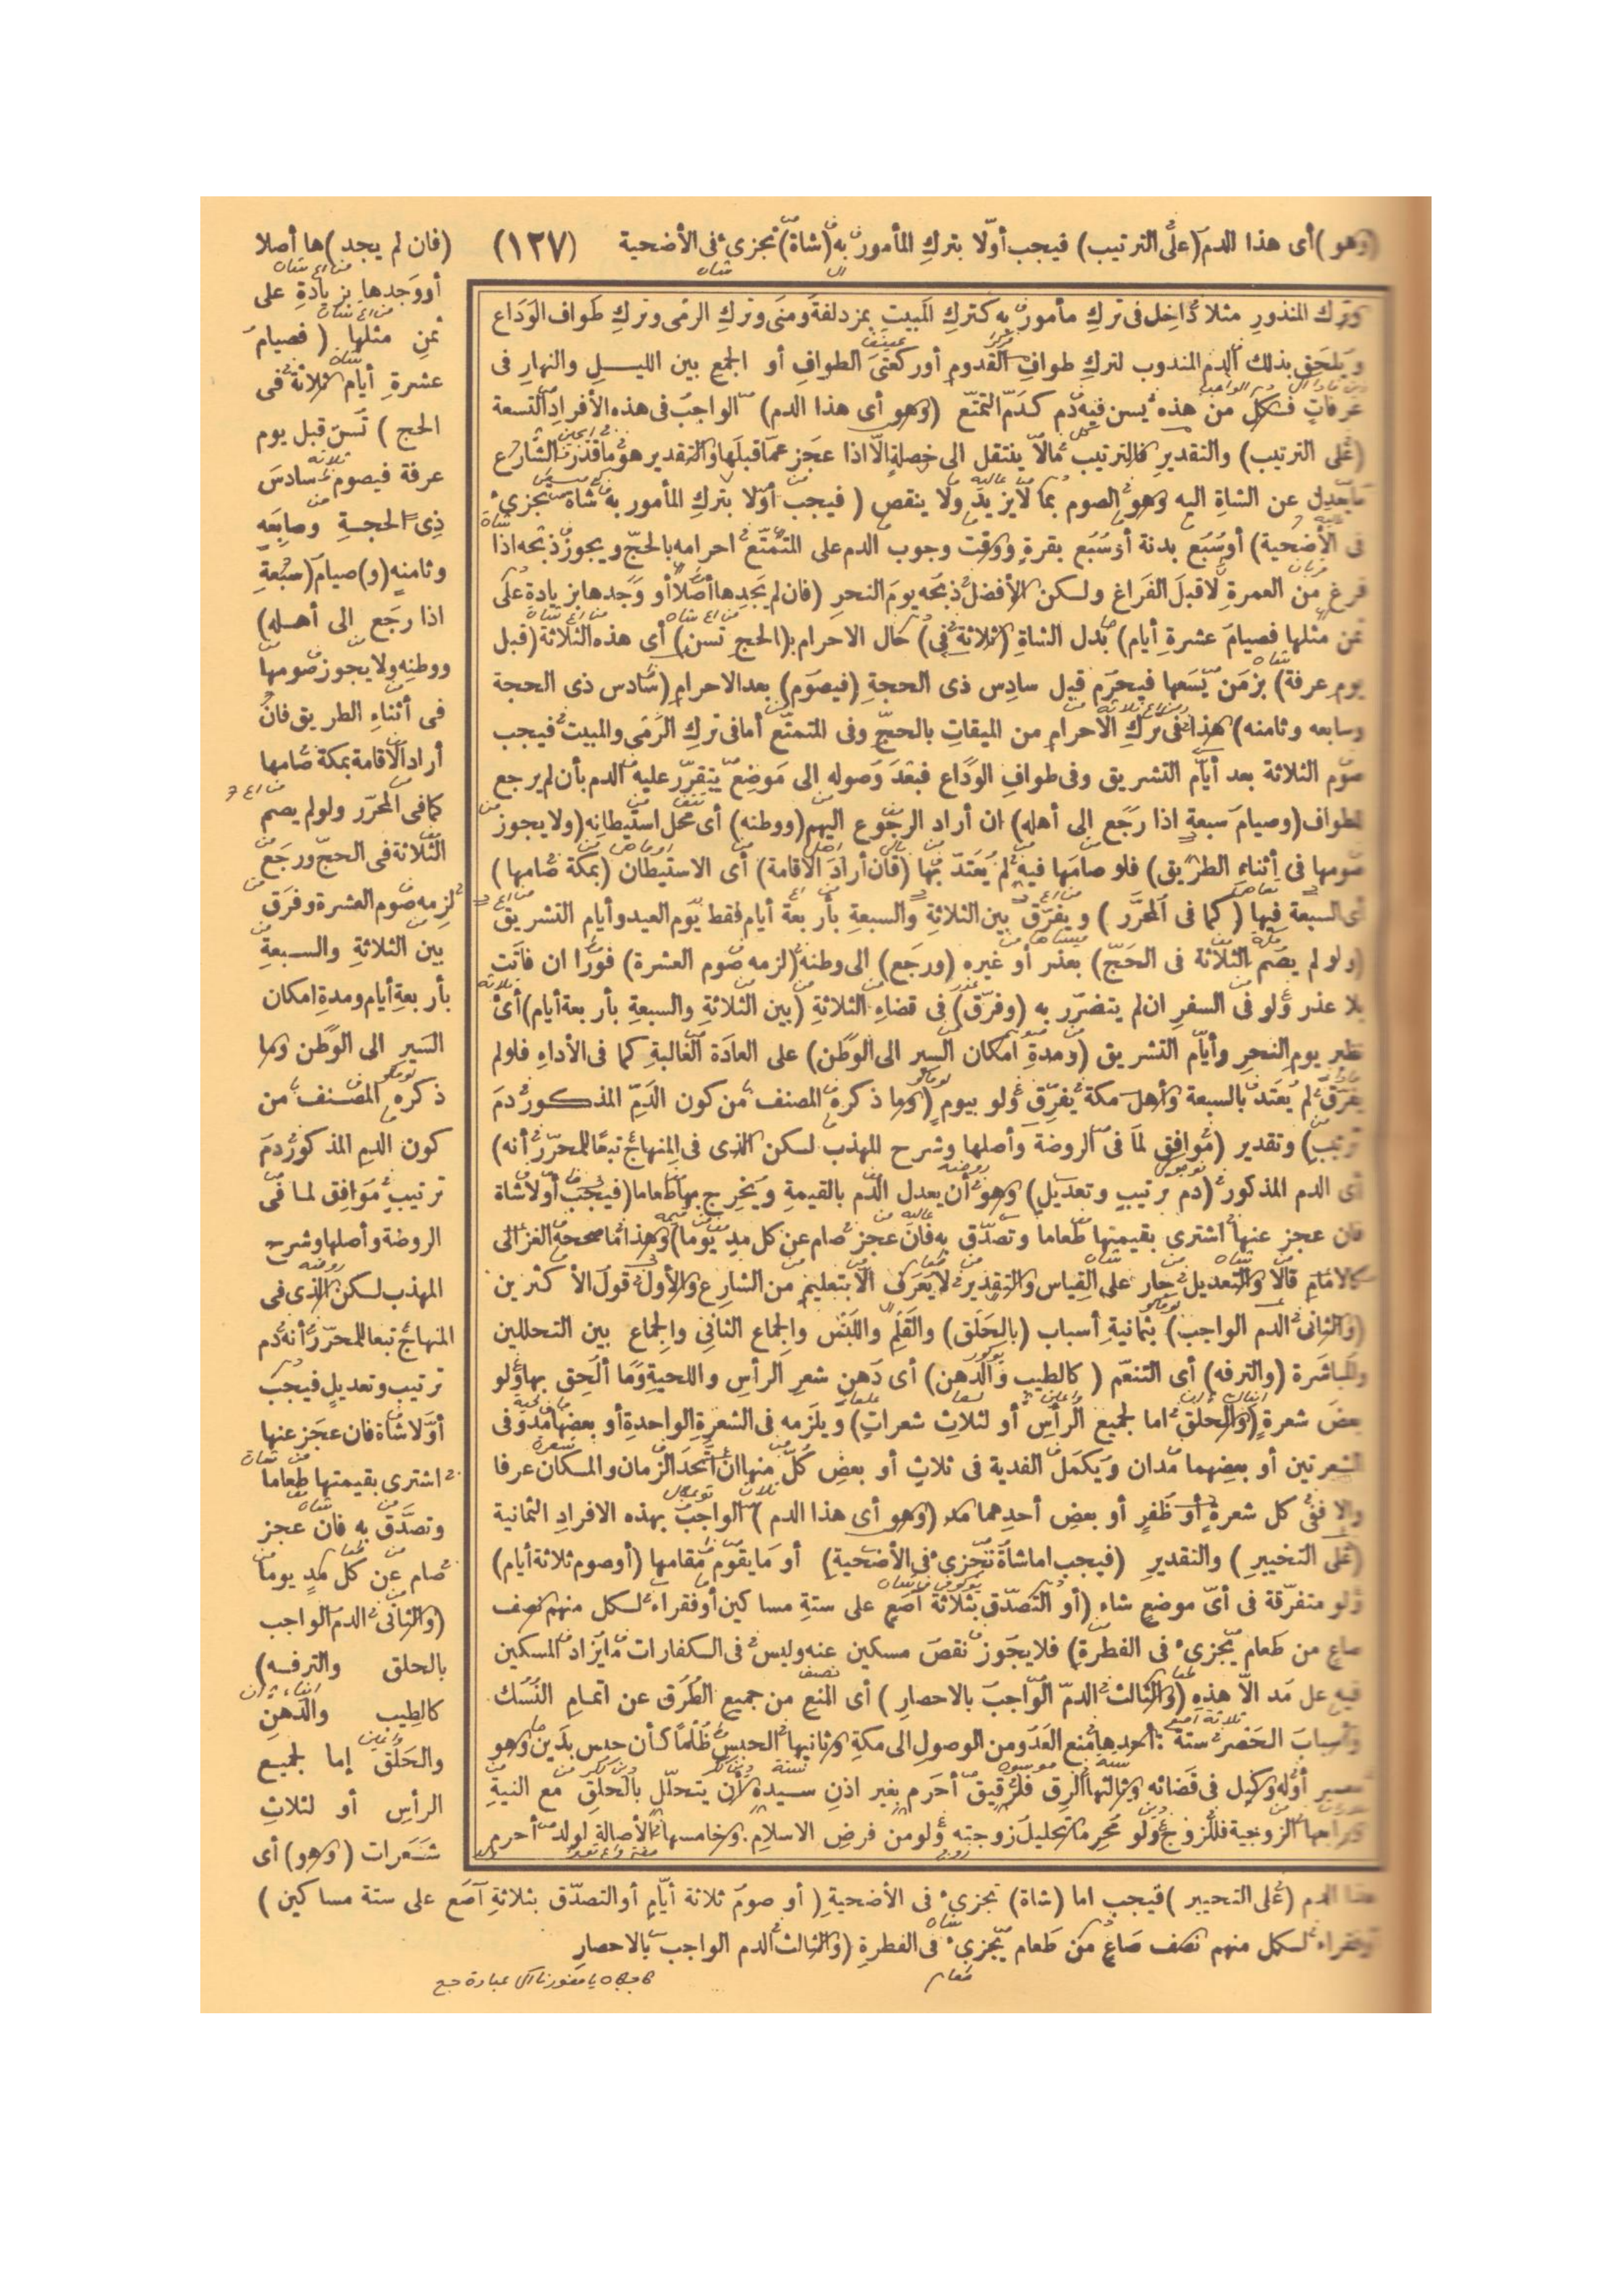 (وهو) أى هذا الدم (على الترتيب) فيجب أولا بترك المأمور به (شاة) تجزئ فى الأضحية (١٢٧) (فان لم يجد) ها أصلا
أو وجدها بزيادة على
ثمن مثلها (فصيام
عشرة أيام ثلاثة فى
الحج) تسن قبل يوم
عرفة فيصوم سادس
ذى الحجة وسابعه
وثامنه (و) صيام (سبعة
اذا رجع الى أهله)
ووطنه ولا يجوز صومها
فى أثناء الطريق فان
أراد الاقامة بمكة صامها
كما فى المحرر ولو لم يصم
الثلاثة فى الحج ورجع
لزمه صوم العشرة وفرق
بين الثلاثة والسبعة
بأربعة أيام ومدة امكان
السير الى الوطن وما
ذكره المصنف من
كون الدم المذكور دم
ترتيب موافق لما فى
الروضة وأصلها وشرح
المهذب لكن الذى فى
المنهاج تبعا للمحرر أنه دم
ترتيب وتعديل فيجب
أولا شاة فان عجز عنها
اشترى بقيمتها طعاما
وتصدق به فان عجز
صام عن كل مد يوما
(والثانى الدم الواجب
بالحلق والترفه)
كالطيب والدهن
والحلق إما لجميع
الرأس أو لثلاث
شعرات (وهو) أى
وترك المنذور مثلا داخل فى ترك مأمور به كترك المبيت بمزدلفة ومنى وترك الرمى وترك طواف الوداع
ويلحق بذلك الدم المندوب لترك طواف القدوم أو ركعتى الطواف أو الجمع بين الليل والنهار فى
عرفات فكل من هذه يسن فيه دم كدم التمتع (وهو أى هذا الدم) الواجب فى هذه الأفراد التسعة
(على الترتيب) والتقدير فالترتيب مالا ينتقل الى خصلة الا اذا عجز عما قبلها والتقدير هو ما قدر الشارع
ما يعدل عن الشاة اليه وهو الصوم بما لا يزيد ولا ينقص (فيجب أولا بترك المأمور به شاة تجزئ
فى الأضحية) أو سبع بدنة أو سبع بقرة ووقت وجوب الدم على المتمتع احرامه بالحج ويجوز ذبحه اذا
فرغ من العمرة لا قبل الفراغ ولكن الأفضل ذبحه يوم النحر (فان لم يجدها أصلا أو وجدها بزيادة على
ثمن مثلها فصيام عشرة أيام) بدل الشاة (ثلاثة فى) حال الاحرام ب(الحج تسن) أى هذه الثلاثة (قبل
يوم عرفة) بزمن يسعها فيحرم قبل سادس ذى الحجة (فيصوم) بعد الاحرام (سادس ذى الحجة
وسابعه وثامنه) هذا فى ترك الاحرام من الميقات بالحج وفى التمتع أما فى ترك الرمى والمبيت فيجب
صوم الثلاثة بعد أيام التشريق وفى طواف الوداع فبعد وصوله الى موضع يتقرر عليه الدم بأن لم يرجع
لطواف (وصيام سبعة اذا رجع الى أهله) ان أراد الرجوع اليهم (ووطنه) أى محل استيطانه (ولا يجوز
صومها فى أثناء الطريق) فلو صامها فيه لم يعتد بها (فان أراد الاقامة) أى الاستيطان (بمكة صامها)
أى السبعة فيها (كما فى المحرر) ويفرق بين الثلاثة والسبعة بأربعة أيام فقط يوم العيد وأيام التشريق
(ولو لم يصم الثلاثة فى الحج) بعذر أو غيره (ورجع) الى وطنه (لزمه صوم العشرة) فورا ان فاتت
بلا عذر ولو فى السفر ان لم يتضرر به (وفرق) فى قضاء الثلاثة (بين الثلاثة والسبعة بأربعة أيام) أى
نظير يوم النحر وأيام التشريق (ومدة امكان السير الى الوطن) على العادة الغالبة كما فى الأداء فلو لم
يفرق لم يعتد بالسبعة وأهل مكة يفرق ولو بيوم (وما ذكره المصنف من كون الدم المذكور دم
ترتيب) وتقدير (موافق لما فى الروضة وأصلها وشرح المهذب لكن الذى فى المنهاج تبعا للمحرر أنه)
أى الدم المذكور (دم ترتيب وتعديل) وهو أن يعدل الدم بالقيمة ويخرج بها طعاما (فيجب أولا شاة
فان عجز عنها اشترى بقيمتها طعاما وتصدق به فان عجز صام عن كل مد يوما) وهذا ما صححه الغزالى
كالامام قالا والتعديل جار على القياس والتقدير لا يعرف الا بتعليم من الشارع والأول قول الأكثرين
(والثانى الدم الواجب) بثمانية أسباب (بالحلق) والقلم واللبس والجماع الثانى والجماع بين التحللين
والمباشرة (والترفه) أى التنعم (كالطيب والدهن) أى دهن شعر الرأس واللحية وما ألحق بها ولو
بعض شعرة (والحلق اما لجميع الرأس أو لثلاث شعرات) ويلزمه فى الشعرة الواحدة أو بعضها مد وفى
الشعرتين أو بعضهما مدان ويكمل الفدية فى ثلاث أو بعض كل منها ان اتحد الزمان والمكان عرفا
والا ففى كل شعرة أو ظفر أو بعض أحدهما مد (وهو أى هذا الدم) الواجب بهذه الافراد الثمانية
(على التخيير) والتقدير (فيجب اما شاة تجزئ فى الأضحية) أو ما يقوم مقامها (أو صوم ثلاثة أيام)
ولو متفرقة فى أى موضع شاء (أو التصدق بثلاثة آصع على ستة مساكين أو فقراء لكل منهم نصف
صاع من طعام يجزئ فى الفطرة) فلا يجوز نقص مسكين عنه وليس فى الكفارات ما يزاد المسكين
فيه على مد الا هذه (والثالث الدم الواجب بالاحصار) أى المنع من جميع الطرق عن اتمام النسك
وأسباب الحصر ستة: أحدها منع العدو من الوصول الى مكة وثانيها الحبس ظلما كأن حبس بدين وهو
معسر أو له وكيل فى قضائه وثالثها الرق فلرقيق أحرم بغير اذن سيده أن يتحلل بالحلق مع النية
ورابعها الزوجية فللزوج ولو محرما تحليل زوجته ولو من فرض الاسلام. وخامسها الأصالة لولد أحرم
هذا الدم (على التخيير) فيجب اما (شاة) تجزئ فى الأضحية (أو صوم ثلاثة أيام أو التصدق بثلاثة آصع على ستة مساكين)
أو فقراء لكل منهم نصف صاع من طعام يجزئ فى الفطرة (والثالث الدم الواجب بالاحصار